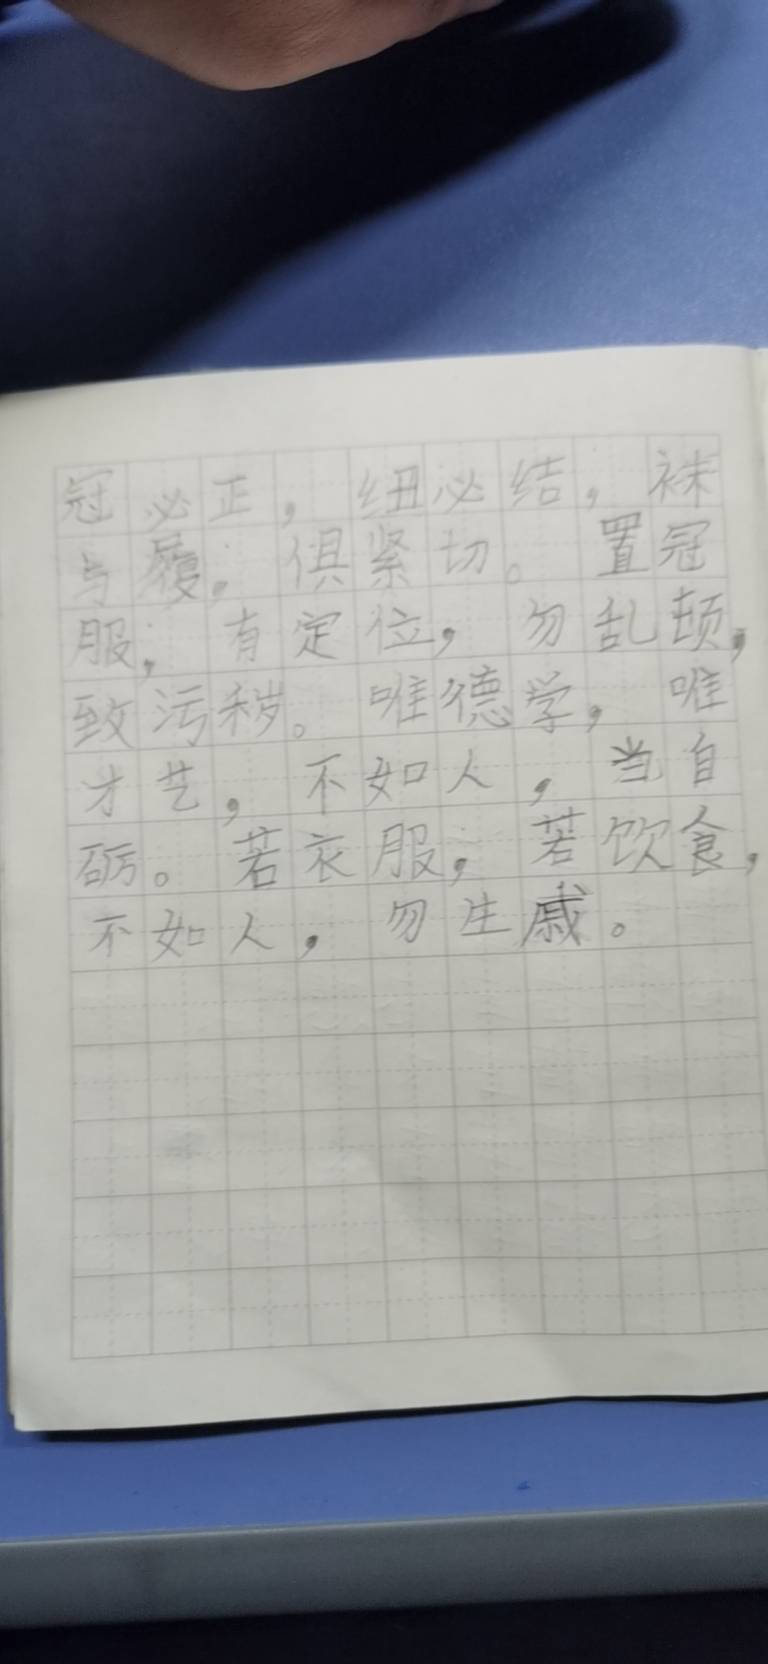 冠必正，纽必结，袜
与履，俱紧切。置冠
服，有定位，勿乱顿，
致污秽。唯德学，唯
才艺，不如人，当自
砺。若衣服，若饮食，
不如人，勿生戚。